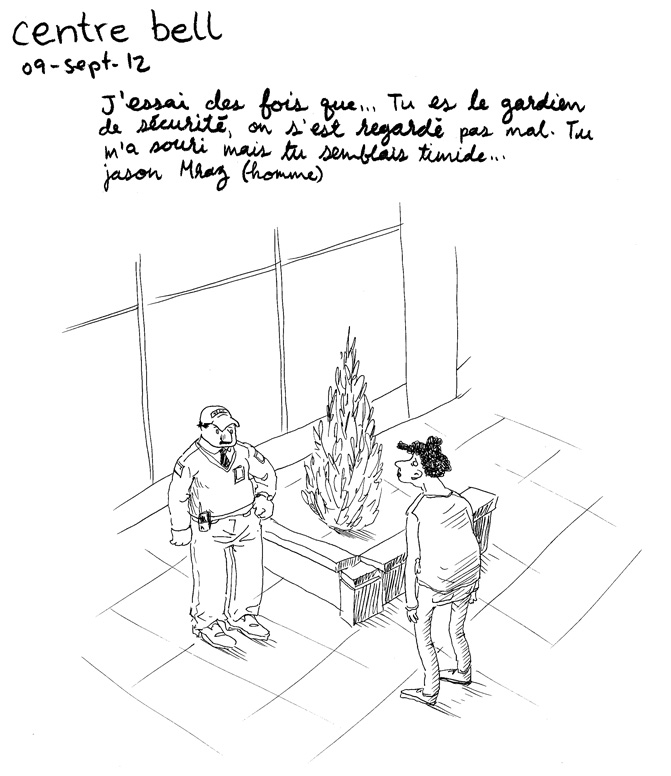 centre bell
09-sept-12
J'essai des fois que... Tu es le gardien
de sécurité, on s'est regardé pas mal. Tu
m'a souri mais tu semblais timide...
jason Mraz (homme)